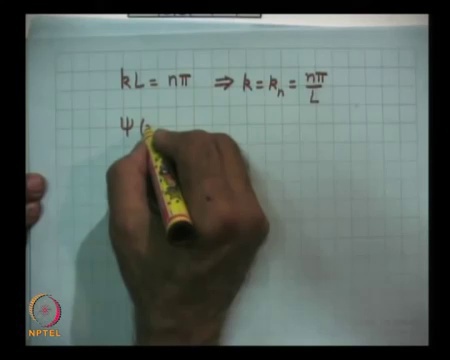 kL = nπ ⇒ k = kₙ = nπ/L
Ψ (
NPTEL